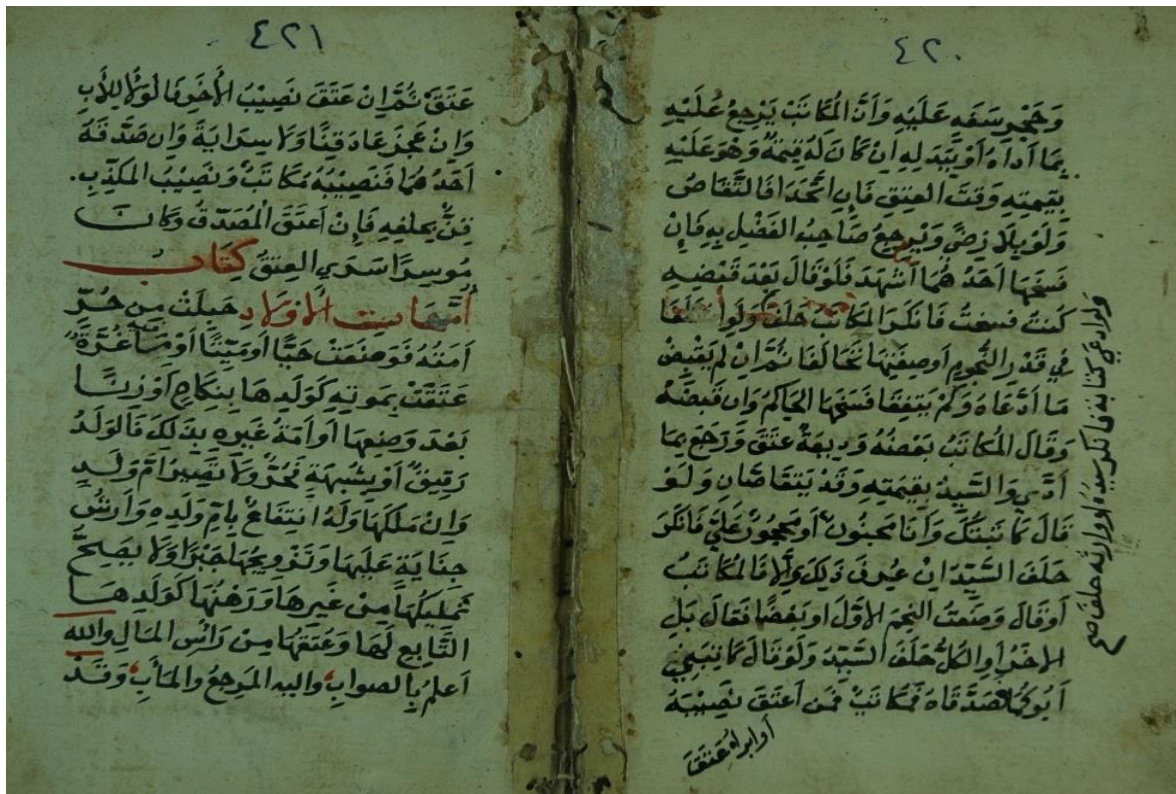 ٤٢٠
وَحَجْرِ سَفَهٍ عَلَيْهِ وَأَنَّ المُكَاتَبَ يَرْجِعُ عَلَيْهِ
بِمَا أَدَّاهُ أَوْ بِبَدَلِهِ اِنْ كَانَ لَهُ قِيْمَةٌ وَهُوَ عَلَيْهِ
بِقِيْمَتِهِ وَقْتَ العِتِقِ فَاِنِ اتَّحَدَا فَالتَّقَاصُّ
وَلَوْ بِلاَ رِضًى وَيَرْجِعُ صَاحِبُ الفَضْلِ بِهِ فَاِنْ
فَسَخَهَا اَحَدُهُمَا أَشْهَدَ فَلَوْ قَالَ بَعْدَ قَبْضِهِ
كُنتُ فسختُ فَانْكَرَ المكَاتَبُ حَلَفَ وَلَوِ اخْتَلَفَا
في قَدْرِ النُّجومِ اَو صِفَتِهَا تَحَالَفَا ثُمَّ اِنْ لَمْ يَقْبِضْ
مَا ادَّعَاهُ وَلَمْ يَتَّفِقَا فَسَخَهَا الحَاكِمُ وَاِن قَبَضَهُ
وَقَالَ المُكَاتَبُ بَعْضُهُ وَدِيعَةٌ عَتَقَ وَرَجَعَ بِمَا
اَدَّى وَالسَّيِّدُ بِقِيمَتِهِ وَقَدْ يَتَقَاصَّانِ وَلَوْ
قَالَ كَاتَبْتُكَ وَاَنَا مَجنُونٌ أو مَحجُورٌ عَلَيَّ فَانْكَرَ
حَلَفَ السَّيِّدُ اِنْ عُرِفَ ذَلِكَ وَاِلَّا فَالمُكَاتَبُ
أَو قَالَ وَضَعتُ النجمَ الأَوَّلَ اَو بَعْضًا فَقَالَ بَلِ
الآخَرَ أَوِ الكُلَّ حَلَفَ السَّيِّدُ وَلَوْ قَالَ كَاتَبَنِي
اَبُوكُمَا فَصَدَّقَاهُ فَمُكَاتَبٌ فَمَن اَعتَقَ نَصِيْبَهُ
أو ابراهُ عَتَقَ
ولو ادعى كتابة فانكر سيده او وارثه حلف صح
٤٢١
عَتَقَ ثُمَّ اِنْ عَتَقَ نَصِيْبُ الأخَرِ فَالوَلاَ لِلأَبِ
وَاِنْ عَجَزَ عَادَ قِنًّا وَلاَ سِرَايَةَ وَاِن صَدَّقَهُ
اَحَدُهُمَا فَنَصِيْبُهُ مُكَاتَبٌ وَنَصِيْبُ المكَذِّبِ.
قِنٌّ بِحَلِفِهِ فَاِنْ اَعتَقَ المُصَدِّقُ وَكَانَ
مُوسِرًا سَرَى العِتقُ كِتَاب
أُمَّهَات الأَوْلاَدِ حَبِلَتْ مِن حُرٍّ
اَمَتُهُ فَوَضَعَتْ حَيًّا أَو مَيِّتًا اَوْ مَا فيه غُرَّةٌ
عَتَقَتْ بِمَوتِهِ كَوَلَدِهَا بِنِكَاحٍ اَوْ زِنًا
بَعْدَ وَضعِهَا اَو اَمَةُ غَيرِهِ بِذَلِكَ فَالوَلَدُ
رَقِيقٌ اَوْ بِشُبهَةٍ فَحُرٌّ وَلا تَصِيرُ اُمَّ وَلَدٍ
وَاِنْ مَلَكَهَا وَلَهُ انتِفَاعٌ بِاُمِّ وَلَدِهِ وَاَرْشُ
جِنَايَةٍ عَلَيهَا وَتَزْوِيجُهَا جَبْرًا وَلاَ يَصِحُّ
تَملِيكُهَا مِنْ غَيرِهَا وَرَهْنُهَا كَوَلَدِهَا
التَّابِعِ لَهَا وَعِتقُهَا مِنْ رَأْسِ المَالِ والله
اَعلمُ بِالصوابِ واليه المَرجِعُ والمَآبِ وَقَدْ